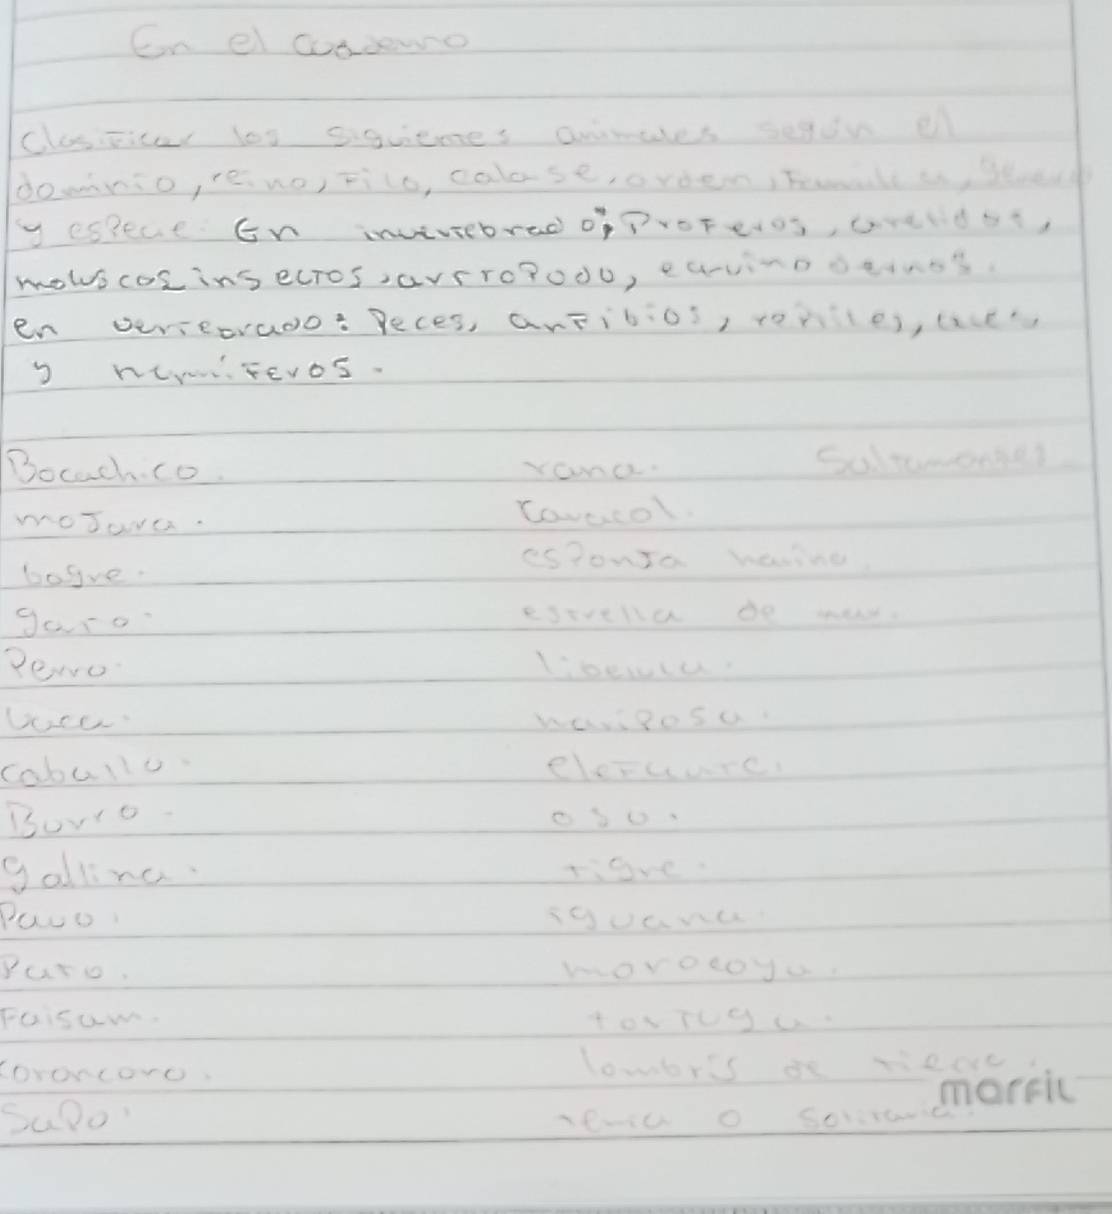 En el cuaderno
Clasificar los siguientes animales según el
dominio, reino, Filo, calase, orden, Familia, genero
y especie: En invertebrado: Proferos, anelidos,
moluscos insectos, artropodo, equinodermos.
en vertebrado: Peces, anfibios, reptiles, aves,
y mamiferos.
Bocachico. rana. Saltamontes
moJara. Caracol.
bagre. esponJa marina.
gato. estrella de mar.
Perro. libelula.
Vaca. mariposa.
caballo. elefante.
Burro. oso.
gallina. tigre.
Pavo. iguana.
Pato. morocoya.
Faisam. tortuga.
Corcoro. lombris de tierra.
Sapo. tenia o solitaria.
marfil